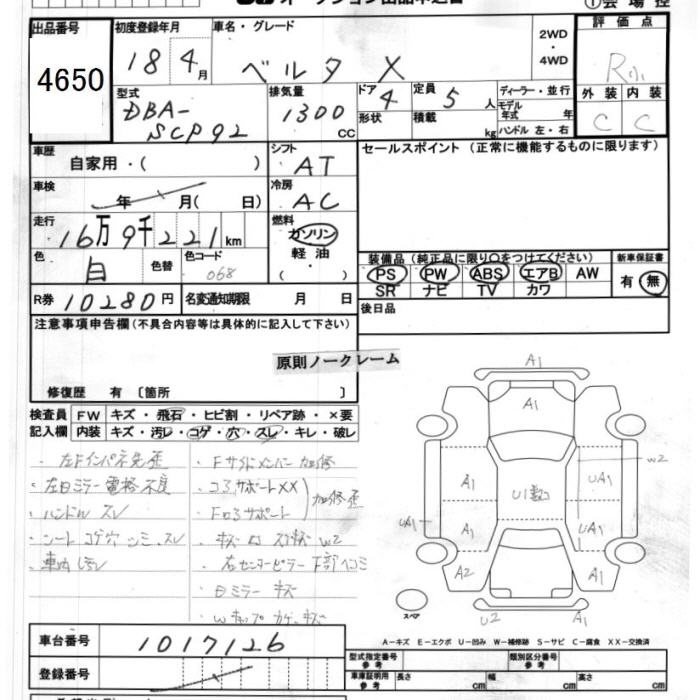 出品番号
4650
初度登録年月
18 4月
車名・グレード
ベルタ X
2WD
・
4WD
評価点
R
型式
DBA-
SCP92
排気量
1300
CC
ドア
4
形状
定員
5 人
積載
kg
ディーラー・並行
モデル
年式 年
ハンドル 左・右
外装 内装
C C
車歴
自家用・( )
シフト
AT
セールスポイント (正常に機能するものに限ります)
車検
年 月( 日)
冷房
AC
走行
16万9千221km
燃料
ガソリン
軽油・
( )
色
白
色替
色コード
068
装備品 (純正品に限り〇をつけてください)
新車保証書
PS PW ABS エアB AW
SR ナビ TV カワ
有・無
R券 10280円
名変通知期限 月 日
後日品
注意事項申告欄 (不具合内容等は具体的に記入して下さい)
原則ノークレーム
修復歴 有〔箇所 〕
検査員
記入欄
FW キズ・飛石・ヒビ割・リペア跡・×要
内装 キズ・汚レ・コゲ・穴・スレ・キレ・破レ
・左Fインパネ先歪
・左右ミラー電格不良
・ハンドルスレ
・シートコゲ穴シミ、スレ
・車内汚レ
・Fサイドメンバー加修
・コアサポートXX
・加修歪
・キズ
・右センターピラー下部ヘコミ
・右ミラーキズ
A1
A1
W2
A1
UA1
U1
UA1
A1
UA1
A2
A1
スペア
U2
A1
A-キズ E-エクボ U-凹み W-補修跡 S-サビ C-腐食 XX-交換済
車台番号 1017126
登録番号
型式指定番号
参考
類別区分番号
参考
車庫証明用
参考
長さ cm 幅 cm 高さ cm